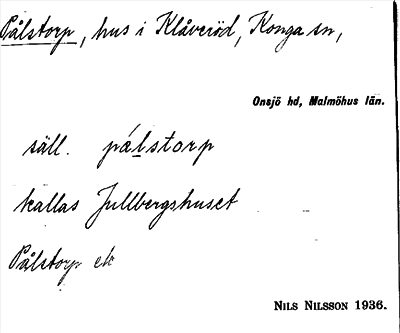 Pålstorp, hus i Klåveröd, Konga sn,
Onsjö hd, Malmöhus län.
säll. pålstorp
kallas Jullbergshuset
Pålstorp
NILS NILSSON 1936.